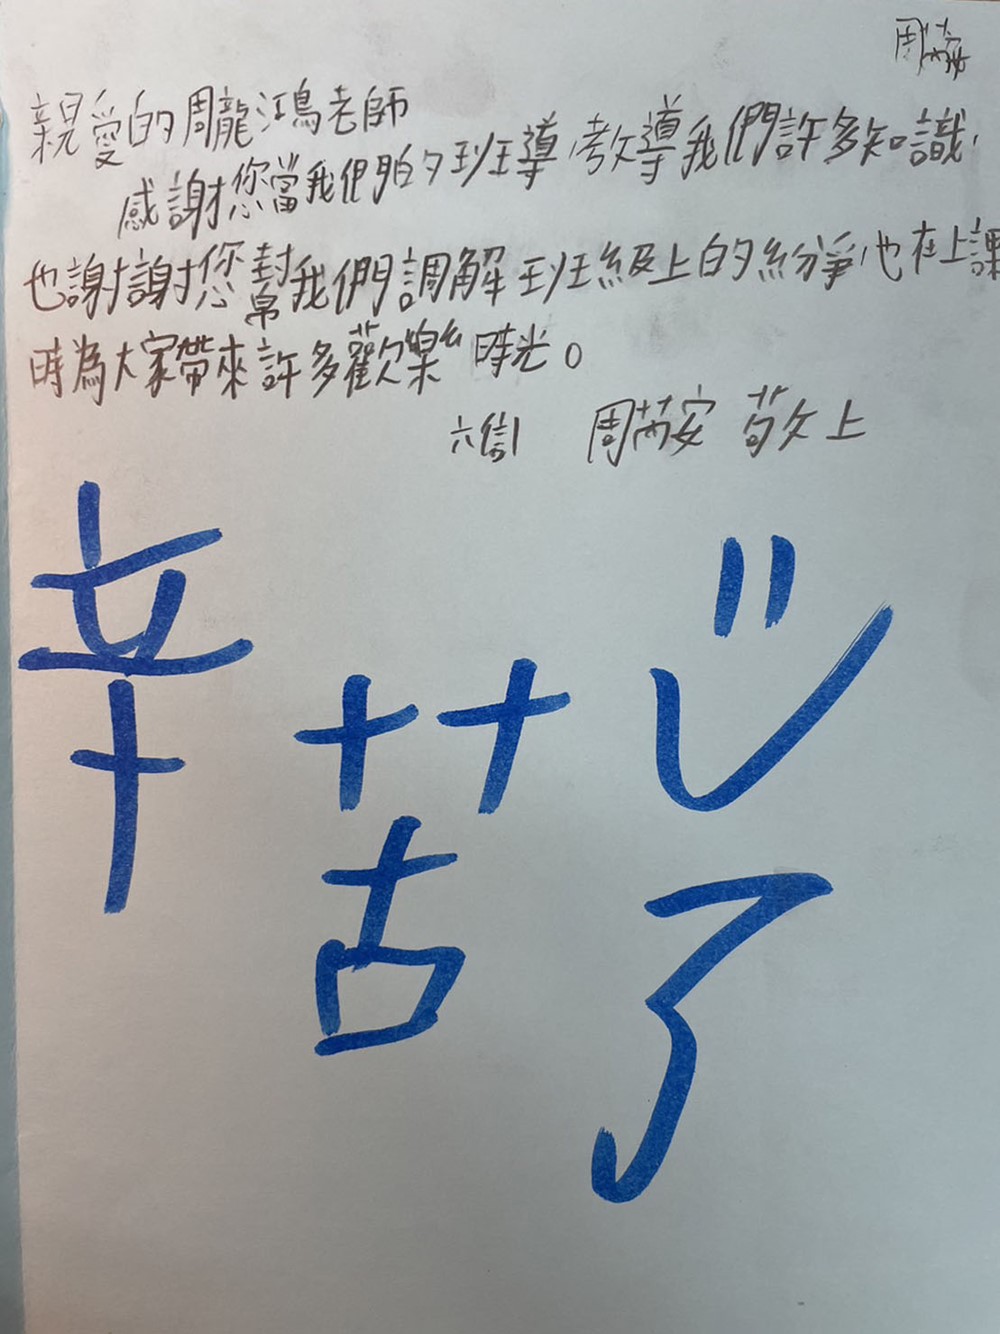 周芮安
親愛的周龍鴻老師
感謝您當我們的班導,教導我們許多知識,
也謝謝您幫我們調解班級上的紛爭,也在上課
時為大家帶來許多歡樂時光。
六雋 周芮安 敬上
辛苦了